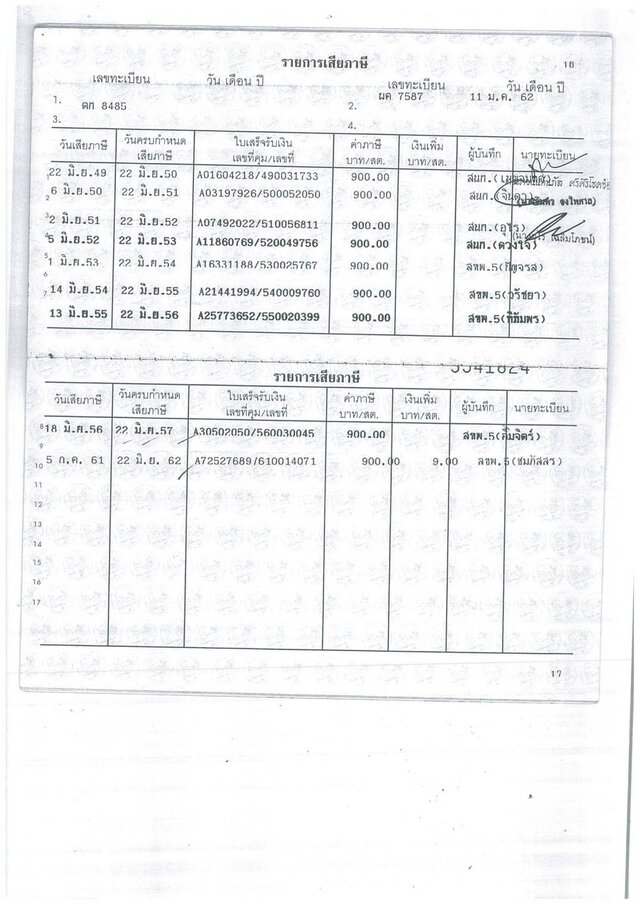 รายการเสียภาษี
18
เลขทะเบียน วัน เดือน ปี เลขทะเบียน วัน เดือน ปี
1. ตก 8485 2. ผค 7587 11 ม.ค. 62
3. 4.
วันเสียภาษี วันครบกำหนดเสียภาษี ใบเสร็จรับเงิน เลขที่คุม/เลขที่ ค่าภาษี บาท/สต. เงินเพิ่ม บาท/สต. ผู้บันทึก นายทะเบียน
1 22 มิ.ย.49 22 มิ.ย.50 A01604218/490031733 900.00 สมก.
2 6 มิ.ย.50 22 มิ.ย.51 A03197926/500052050 900.00 สมก.(จินดา)
3 2 มิ.ย.51 22 มิ.ย.52 A07492022/510056811 900.00 สมก.(อุไร)
4 5 มิ.ย.52 22 มิ.ย.53 A11860769/520049756 900.00 สมก.(ดวงใจ)
5 1 มิ.ย.53 22 มิ.ย.54 A16331188/530025767 900.00 สขพ.5(กัญจรส)
7 14 มิ.ย.54 22 มิ.ย.55 A21441994/540009760 900.00 สขพ.5(วรัชยา)
13 มิ.ย.55 22 มิ.ย.56 A25773652/550020399 900.00 สขพ.5
5541824
รายการเสียภาษี
วันเสียภาษี วันครบกำหนดเสียภาษี ใบเสร็จรับเงิน เลขที่คุม/เลขที่ ค่าภาษี บาท/สต. เงินเพิ่ม บาท/สต. ผู้บันทึก นายทะเบียน
8 18 มิ.ย.56 22 มิ.ย.57 A30502050/560030045 900.00 สขพ.5
9
10 5 ก.ค. 61 22 มิ.ย. 62 A72527689/610014071 900.00 9.00 ลขพ.5(ชมภัสสร)
11
12
13
14
15
16
17
17